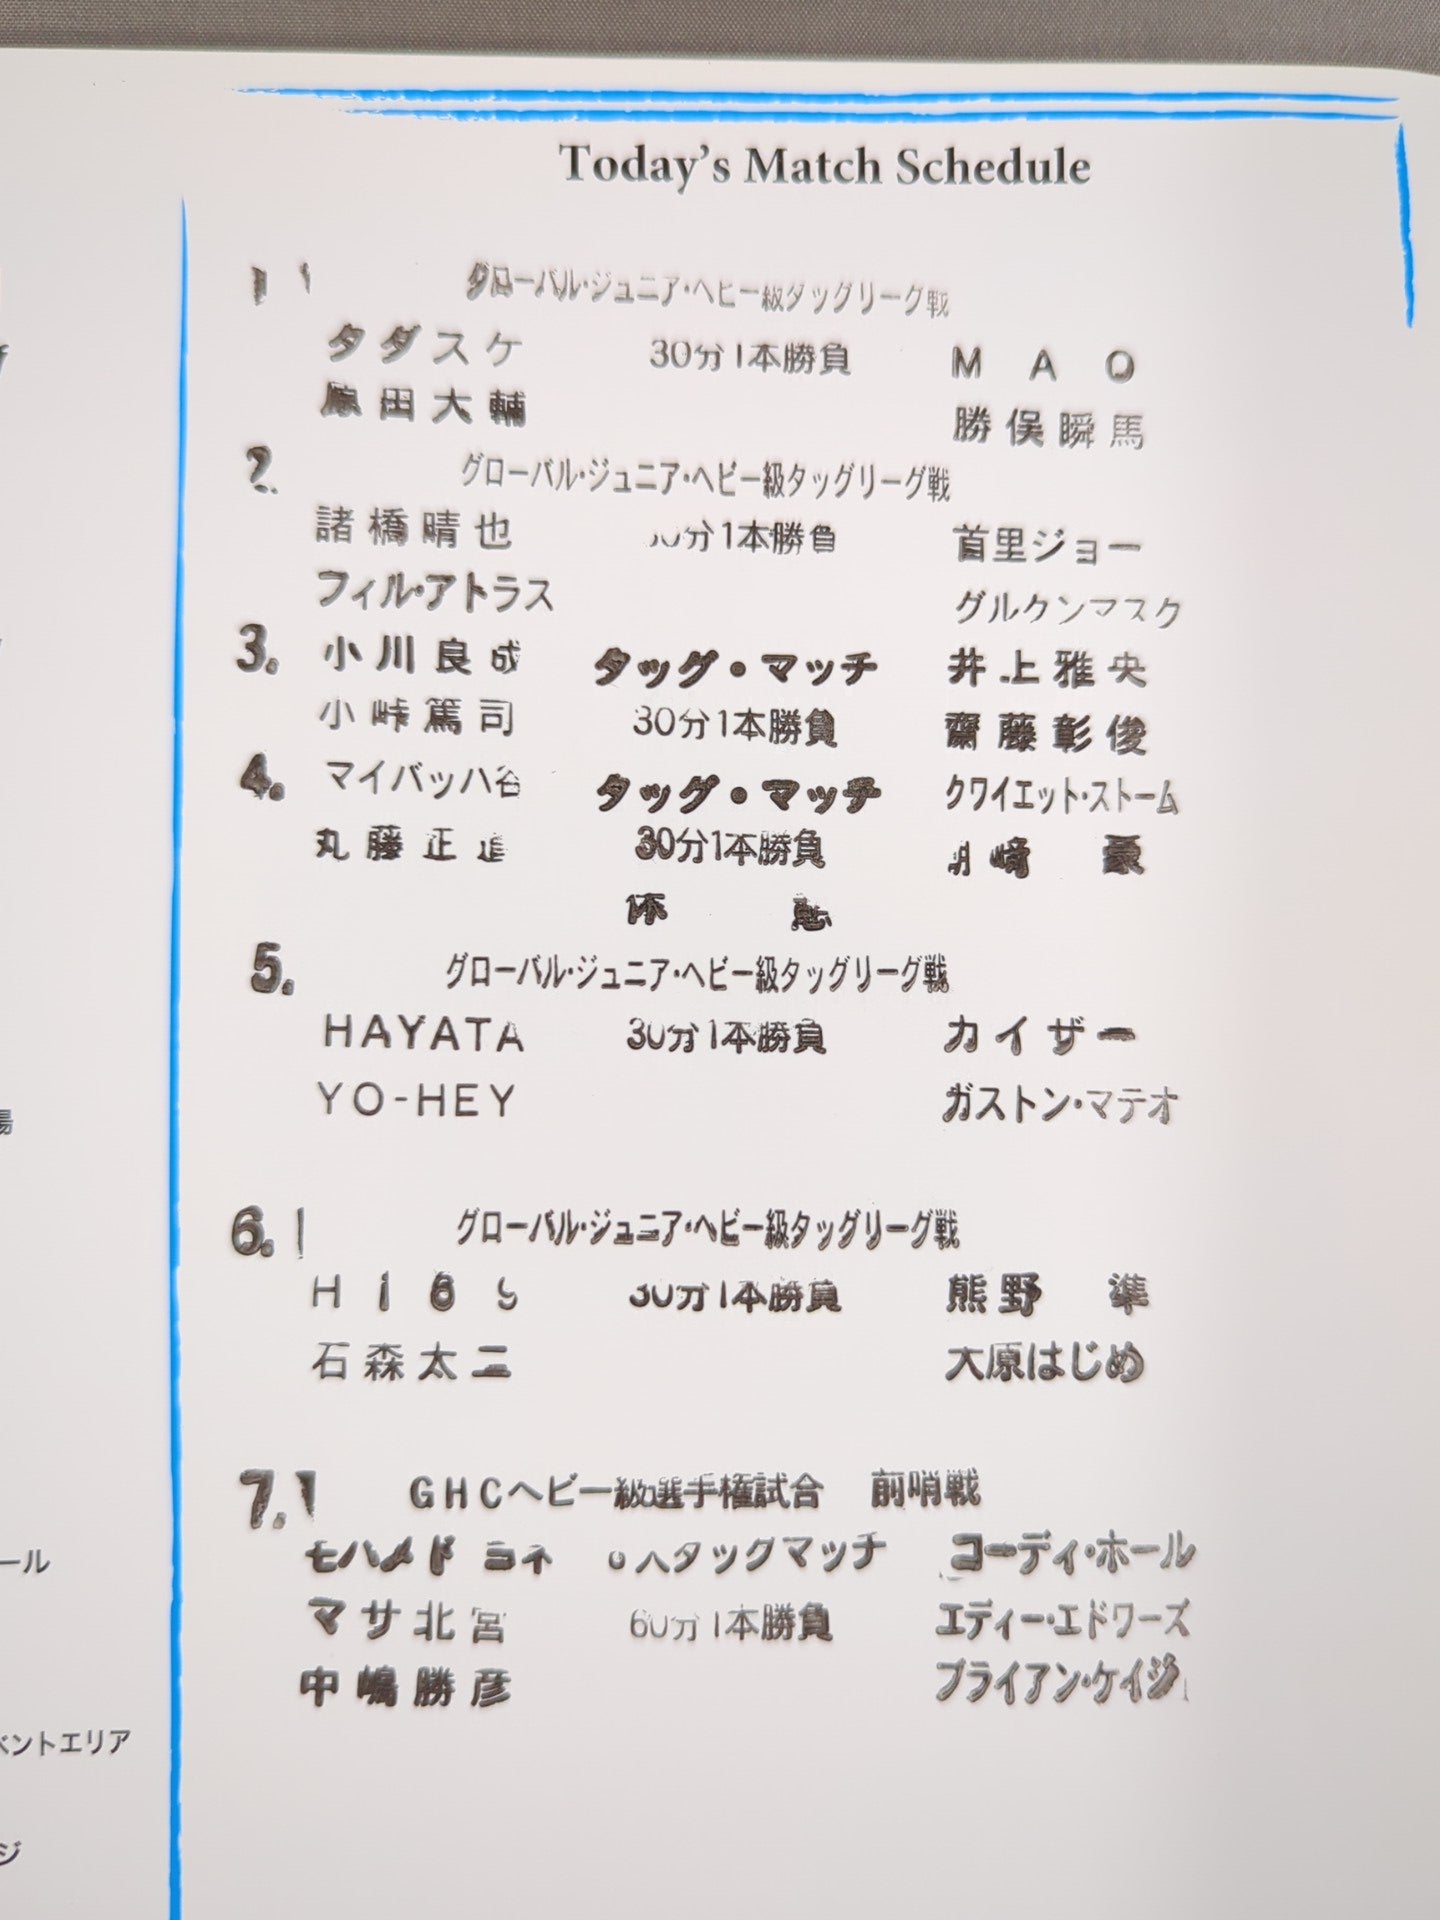 Today's Match Schedule
グローバル・ジュニア・ヘビー級タッグリーグ戦
タダスケ 30分1本勝負 MAO
原田大輔 勝俣瞬馬
2. グローバル・ジュニア・ヘビー級タッグリーグ戦
諸橋晴也 分1本勝負 首里ジョー
フィル・アトラス グルクンマスク
3. 小川良成 タッグ・マッチ 井上雅央
小峠篤司 30分1本勝負 齋藤彰俊
4. マイバッハ谷 タッグ・マッチ クワイエット・ストーム
丸藤正 30分1本勝負 﨑 豪
5. グローバル・ジュニア・ヘビー級タッグリーグ戦
HAYATA 30分1本勝負 カイザー
YO-HEY ガストン・マテオ
6. グローバル・ジュニア・ヘビー級タッグリーグ戦
Hi69 30分1本勝負 熊野 準
石森太二 大原はじめ
7. GHCヘビー級選手権試合 前哨戦
モハメド ヨネ 人タッグマッチ コーディ・ホール
マサ北宮 60分1本勝負 エディー・エドワーズ
中嶋勝彦 ブライアン・ケイジ
場
ール
ベントエリア
ジ